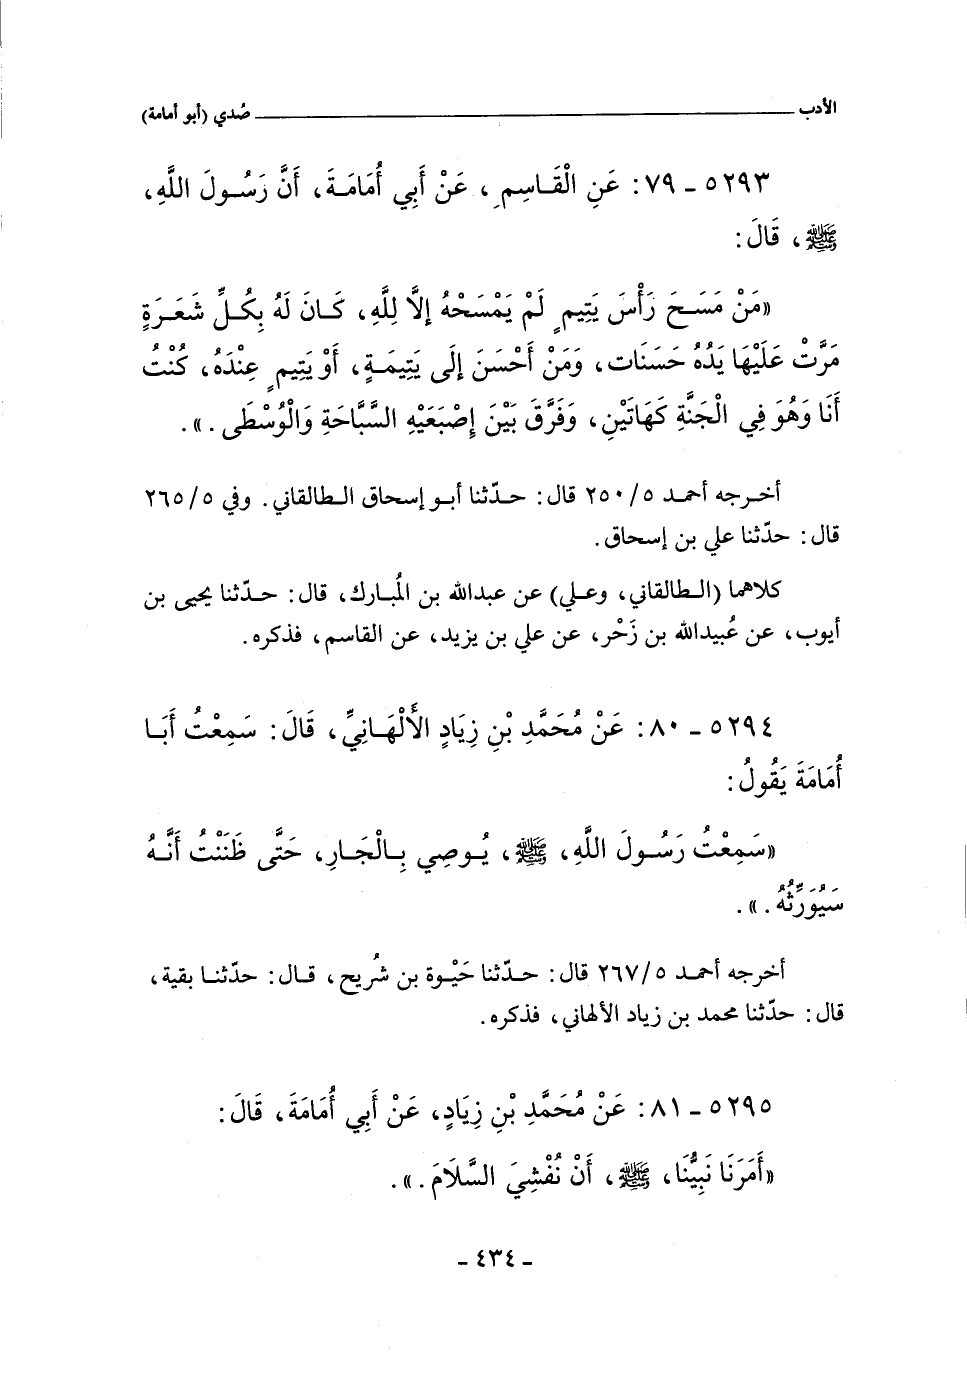 الأدب ــــــــــــــــــــ صُدي (أبو أمامة)
٥٢٩٣ ـ ٧٩: عَنِ الْقَاسِمِ، عَنْ أَبِي أُمَامَةَ، أَنَّ رَسُولَ اللَّهِ،
ﷺ، قَالَ:
«مَنْ مَسَحَ رَأْسَ يَتِيمٍ لَمْ يَمْسَحْهُ إِلَّا لِلَّهِ، كَانَ لَهُ بِكُلِّ شَعَرَةٍ
مَرَّتْ عَلَيْهَا يَدُهُ حَسَنَات، وَمَنْ أَحْسَنَ إِلَى يَتِيمَةٍ، أَوْ يَتِيمٍ عِنْدَهُ، كُنْتُ
أَنَا وَهُوَ فِي الْجَنَّةِ كَهَاتَيْنِ، وَفَرَّقَ بَيْنَ إِصْبَعَيْهِ السَّبَّاحَةِ وَالْوُسْطَى.».
أخرجه أحمد ٥/٢٥٠ قال: حدّثنا أبو إسحاق الطالقاني. وفي ٥/٢٦٥
قال: حدّثنا علي بن إسحاق.
كلاهما (الطالقاني، وعلي) عن عبدالله بن المُبارك، قال: حدّثنا يحيى بن
أيوب، عن عُبيدالله بن زَحْر، عن علي بن يزيد، عن القاسم، فذكره.
٥٢٩٤ ـ ٨٠: عَنْ مُحَمَّدِ بْنِ زِيَادٍ الأَلْهَانِيِّ، قَالَ: سَمِعْتُ أَبَا
أُمَامَةَ يَقُولُ:
«سَمِعْتُ رَسُولَ اللَّهِ، ﷺ، يُوصِي بِالْجَارِ، حَتَّى ظَنَنْتُ أَنَّهُ
سَيُوَرِّثُهُ.».
أخرجه أحمد ٥/٢٦٧ قال: حدّثنا حَيْوة بن شُريح، قال: حدّثنا بقية،
قال: حدّثنا محمد بن زياد الألهاني، فذكره.
٥٢٩٥ ـ ٨١: عَنْ مُحَمَّدِ بْنِ زِيَادٍ، عَنْ أَبِي أُمَامَةَ، قَالَ:
«أَمَرَنَا نَبِيُّنَا، ﷺ، أَنْ نُفْشِيَ السَّلَامَ.».
ـ ٤٣٤ ـ